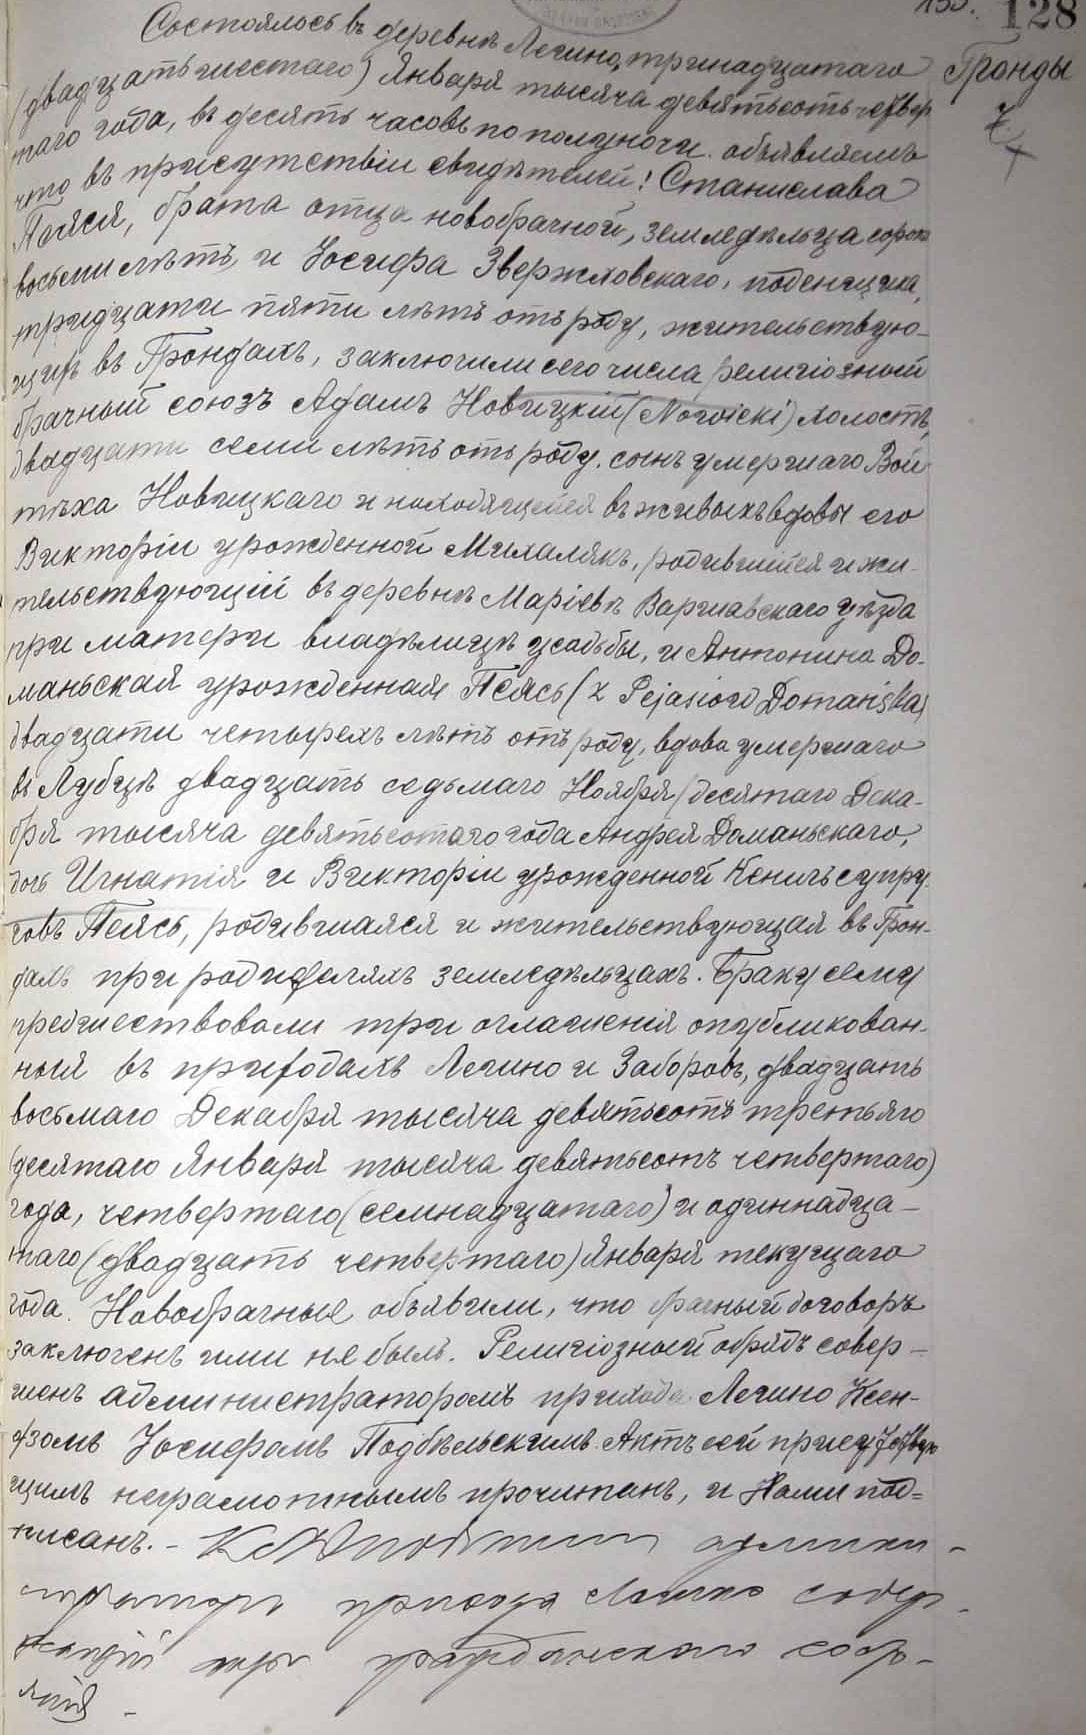 128
Гронды
7
Состоялось въ деревнѣ Лешно, тринадцатаго
(двадцать шестаго) Января тысяча девятьсотъ четвер
таго года, въ десять часовъ по полуночи. объявляемъ
что въ присутствіи свидѣтелей: Станислава
Пеяся, брата отца новобрачной, земледѣльца сорока
восьми лѣтъ, и Іосифа Звержховскаго, поденщика,
тридцати пяти лѣтъ отъ роду, жительствую-
щихъ въ Грондахъ, заключили сего числа религіозный
брачный союзъ Адамъ Новицкій (Nowicki) холостъ,
двадцати семи лѣтъ отъ роду, сынъ умершаго Вой
тѣха Новицкаго и находящейся въ живыхъ вдовы его
Викторіи урожденной Михалякъ, родившійся и жи-
тельствующій въ деревнѣ Маріевѣ Варшавскаго уѣзда
при матери владѣлицѣ усадьбы, и Антонина До-
маньская урожденная Пеясь (z Pejasiów Domańska)
двадцати четырехъ лѣтъ отъ роду, вдова умершаго
въ Лубцѣ двадцать седьмаго Ноября (десятаго Дека-
бря тысяча девятьсотаго года Андрея Доманьскаго,
дочь Игнатія и Викторіи урожденной Ксничъ супру
говъ Пеясь, родившаяся и жительствующая въ Грон-
дахъ при родителяхъ земледѣльцахъ. Браку сему
предшествовали три оглашенія опубликован-
ныя въ приходахъ Лешно и Заборовъ, двадцать
восьмаго Декабря тысяча девятьсотъ третьяго
(десятаго Января тысяча девятьсотъ четвертаго)
года, четвертаго (семнадцатаго) и одиннадца-
таго (двадцать четвертаго) Января текущаго
года. Новобрачные объявили, что брачный договоръ
заключенъ ими не былъ. Религіозный обрядъ совер-
шенъ администраторомъ прихода Лешно Ксен-
дзомъ Іосифомъ Подбѣльскимъ. Актъ сей присутствую
щимъ неграмотнымъ прочитанъ, и Нами под=
писанъ. - админи-
страторъ прихода Лешно содер-
жащій акты гражданскаго состо-
янія -